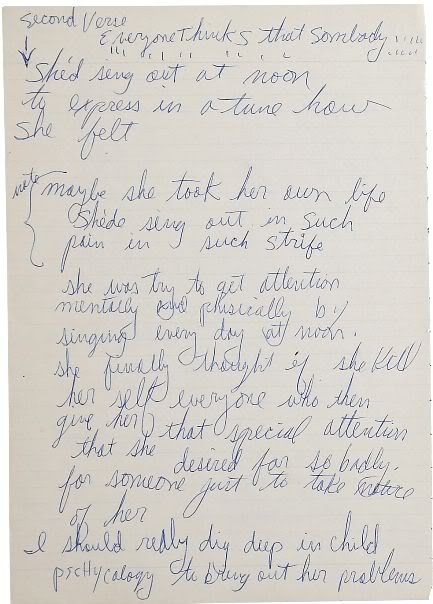 Second Verse
EveryoneThinkS that Sombady
She'd sing out at noon
ty express in a tune how
She felt
note maybe she took her own life
Shéde sing out in such
pain in such strife
she was try to get attention
mentally and phisically by
singing every day at noon.
she finally thought if she Kill
her self everyone who then
give her that special attention
that she desired for so badly.
for someone just to take notice
of her
I should really dig diep in child
pscHycology to bring out her problems